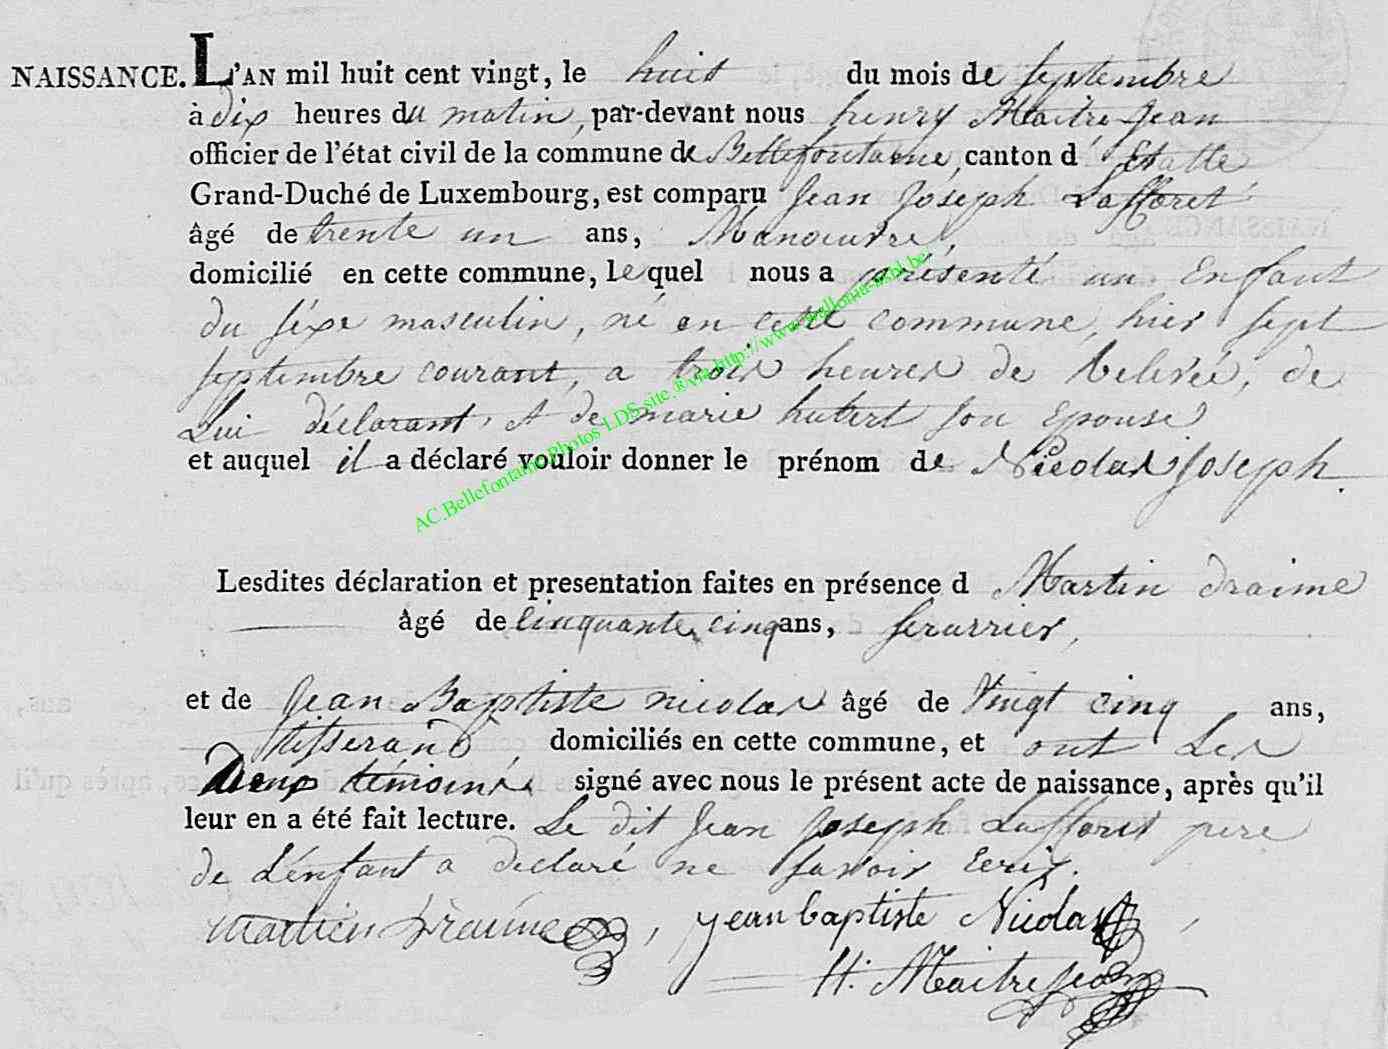 NAISSANCE. L'AN mil huit cent vingt, le huit du mois de septembre
à dix heures du matin, par-devant nous henry Maitre Jean
officier de l'état civil de la commune de Bellefontaine, canton d' Etalle
Grand-Duché de Luxembourg, est comparu Jean Joseph Lafforet
âgé de trente un ans, Manœuvre,
domicilié en cette commune, lequel nous a présenté un Enfant
du séxe masculin, né en cette commune, hier sept
septembre courant, a trois heures de relevée, de
Lui déclarant, et de marie hubert son Epouse
et auquel il a déclaré vouloir donner le prénom de Nicolas Joseph.
AC.Bellefontaine Photos LDS site ® via http://www.wallonia-mbl.be
Lesdites déclaration et presentation faites en présence d Martin draime
âgé de cinquante cinq ans, serurrier,
et de Jean Baptiste nicolas âgé de Vingt cinq ans,
tisserand domiciliés en cette commune, et ont Les
Deux témoins signé avec nous le présent acte de naissance, après qu'il
leur en a été fait lecture. Le dit Jean Joseph Lafforet pere
de L'énfant a declaré ne savoir Ecrir.
martin draime, jean baptiste Nicolas,
H. Maitrejean